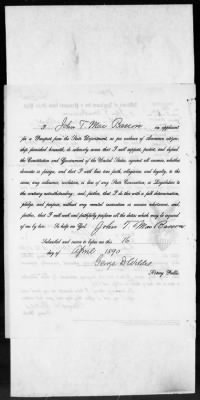 I John T. Mac Bacon an applicant
for a Passport from the State Department, as per evidence of American citizen-
ship furnished herewith, do solemnly swear that I will support, protect, and defend
the Constitution and Government of the United States, against all enemies, whether
domestic or foreign, and that I will bear true faith, allegiance, and loyalty, to the
same, any ordinance, resolution, or law of any State Convention, or Legislature to
the contrary notwithstanding; and further, that I do this with a full determination,
pledge, and purpose, without any mental reservation or evasion whatsoever, and
further, that I will well and faithfully perform all the duties which may be required
of me by law. So help me God. John T. Mac Bacon
Subscribed and sworn to before me this 16
day of April 1890
George D.
Notary Public.